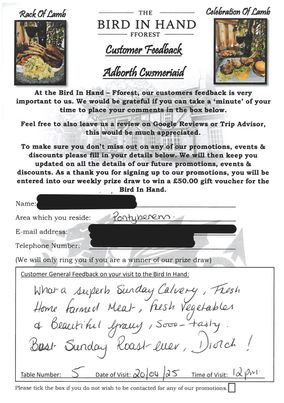 Rack Of Lamb
Celebration Of Lamb
THE
BIRD IN HAND
FFOREST
Customer Feedback
Adborth Cwsmeriaid
At the Bird In Hand – Fforest, our customers feedback is very
important to us. We would be grateful if you can take a 'minute' of your
time to place your comments in the box below.
Feel free to also leave us a review on Google Reviews or Trip Advisor,
this would be much appreciated.
To make sure you don't miss out on any of our promotions, events &
discounts please fill in your details below. We will then keep you
updated on all the details of our future promotions, events &
discounts. As a thank you for signing up to our promotions, you will be
entered into our weekly prize draw to win a £50.00 gift voucher for the
Bird In Hand.
Name:
Area which you reside: Pontyberem
E-mail address:
Telephone Number:
(We will only ring you if you are a winner of our prize draw)
Customer General Feedback on your visit to the Bird In Hand:
What a superb Sunday Calvery, Fresh
Home farmed Meat, fresh vegetables
& Beautiful gravy, Sooo-tasty.
Best Sunday Roast ever, Diolch!
Table Number: 5 Date of Visit: 20/04/25 Time of Visit: 12pm
Please tick the box if you do not wish to be contacted for any of our promotions.